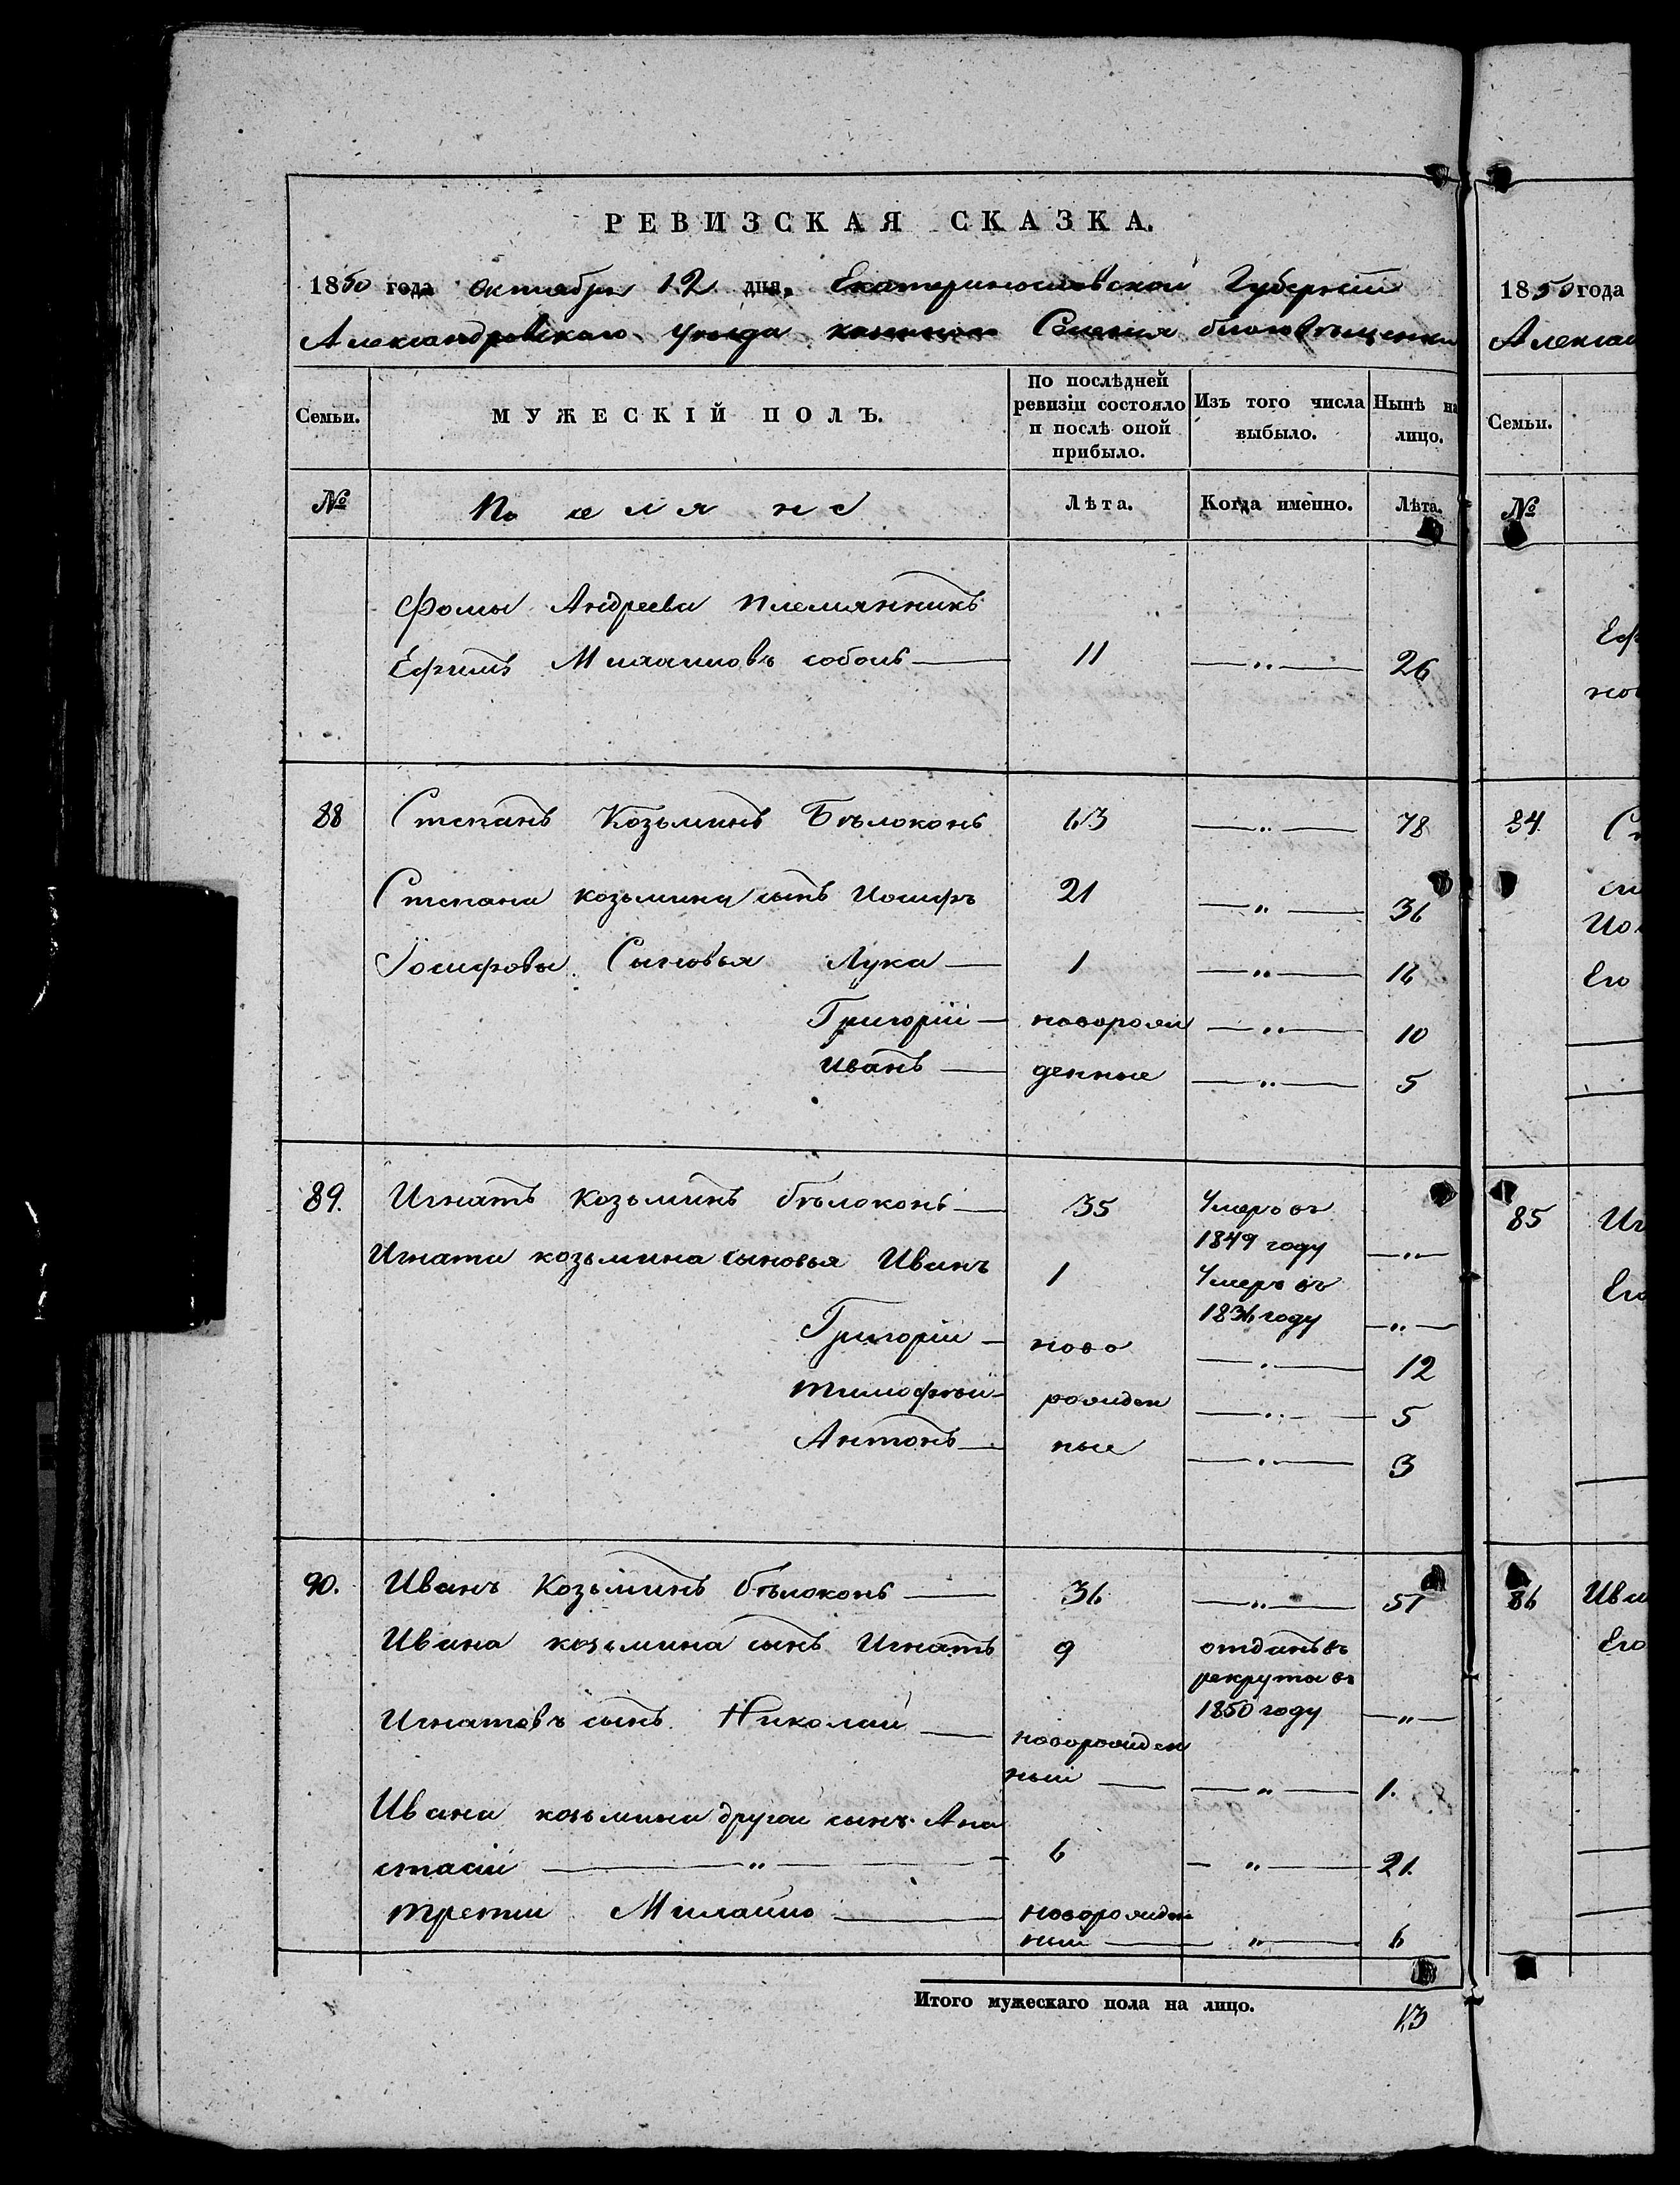 РЕВИЗСКАЯ СКАЗКА.
1850 года октября 12 дня, Екатеринославской Губернии
Александровскаго уезда казенного Селения благовѣщенки
Семьи.
МУЖЕСКІЙ ПОЛЪ.
По послѣдней ревизіи состояло и послѣ оной прибыло.
Изъ того числа выбыло.
Нынѣ на лицо.
№
Поселяне
Лѣта.
Когда именно.
Лѣта.
Фомы Андреева племянникъ
Ефимъ Михаиловъ соболь 11 — „ — 26
88 Степанъ Козьминъ Бѣлоконь 63 — „ — 78
Степана козьмина сынъ Иосифъ 21 — „ — 36
Іосифовы Сыновья Лука 1 — „ — 16
Григорій — новорож — „ — 10
Иванъ — денные — „ — 5
89. Игнатъ Козьминъ бѣлоконь 35 Умеръ въ
1849 году — „ —
Игната козьмина сыновья Иванъ 1 Умеръ въ
1836 году — „ —
Григорій — ново — „ — 12
тимофѣй — рожден — „ — 5
Антонъ — ные — „ — 3
90. Иванъ Козьминъ бѣлоконь 36 — „ — 51
Ивана козьмина сынъ Игнатъ 9 отданъ въ
рекрута въ
1850 году — „ —
Игнатовъ сынъ Николай — новорожден
ный — „ — 1.
Ивана козьмина другой сынъ Ана
стасій — „ — 6 — „ — 21.
третий Михайло — новорожден
ный — „ — 6
Итого мужескаго пола на лицо. 13
1850 года
Алексан
Семьи.
№
Еф
84
Ст
Ио
Его
85
Иг
Его
86
Ива
Его